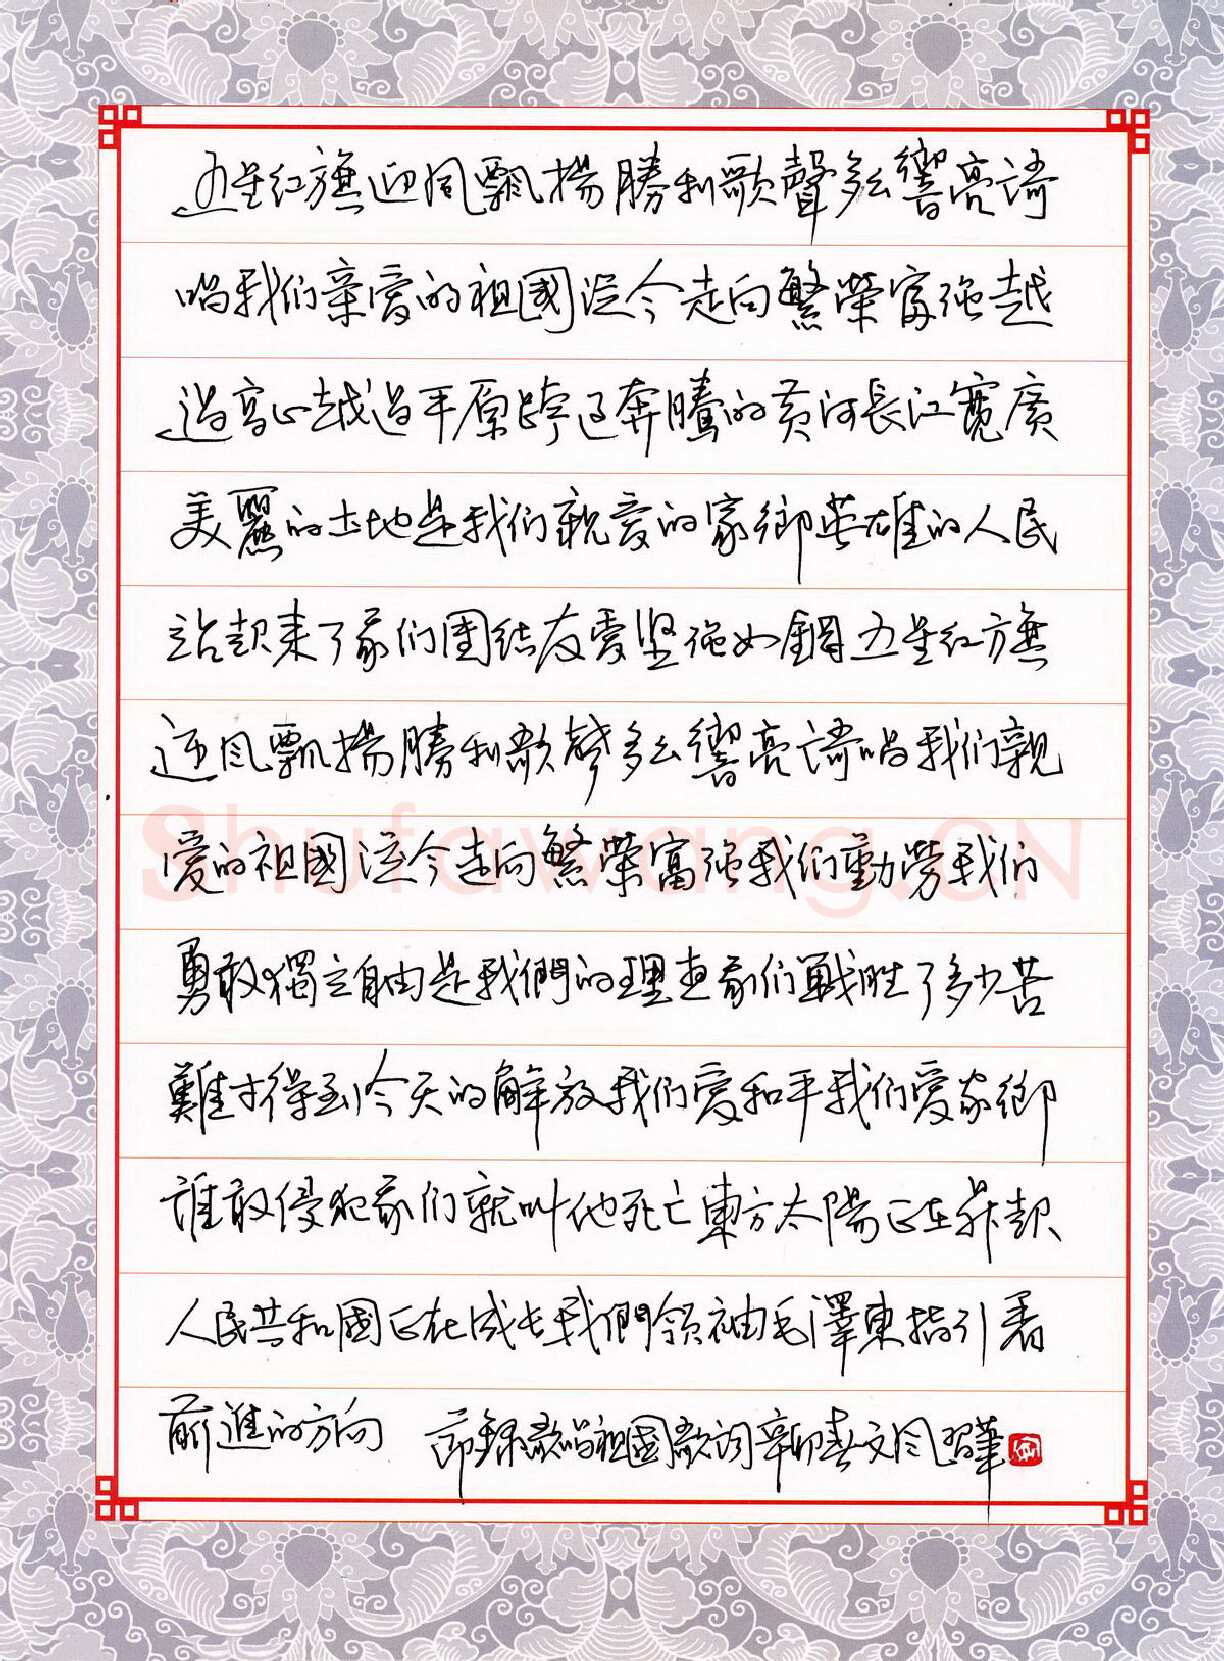 五星红旗迎风飘揚勝利歌聲多么響亮请
唱我们亲爱的祖國从今走向繁榮富强越
过高山越过平原跨过奔騰的黄河長江寬廣
美麗的土地是我们親爱的家鄉英雄的人民
站起来了我们團结友爱坚强如鋼五星红旗
迎风飘揚勝利歌聲多么響亮请唱我们親
爱的祖國从今走向繁榮富强我们勤勞我们
勇敢獨立自由是我們的理想我们戰胜了多少苦
難才得到今天的解放我们爱和平我们爱家鄉
谁敢侵犯我们就叫他死亡東方太陽正在升起
人民共和國正在成长我們領袖毛澤東指引着
前進的方向 節録歌唱祖國歌词辛卯春文风習筆
Shufawang.CN